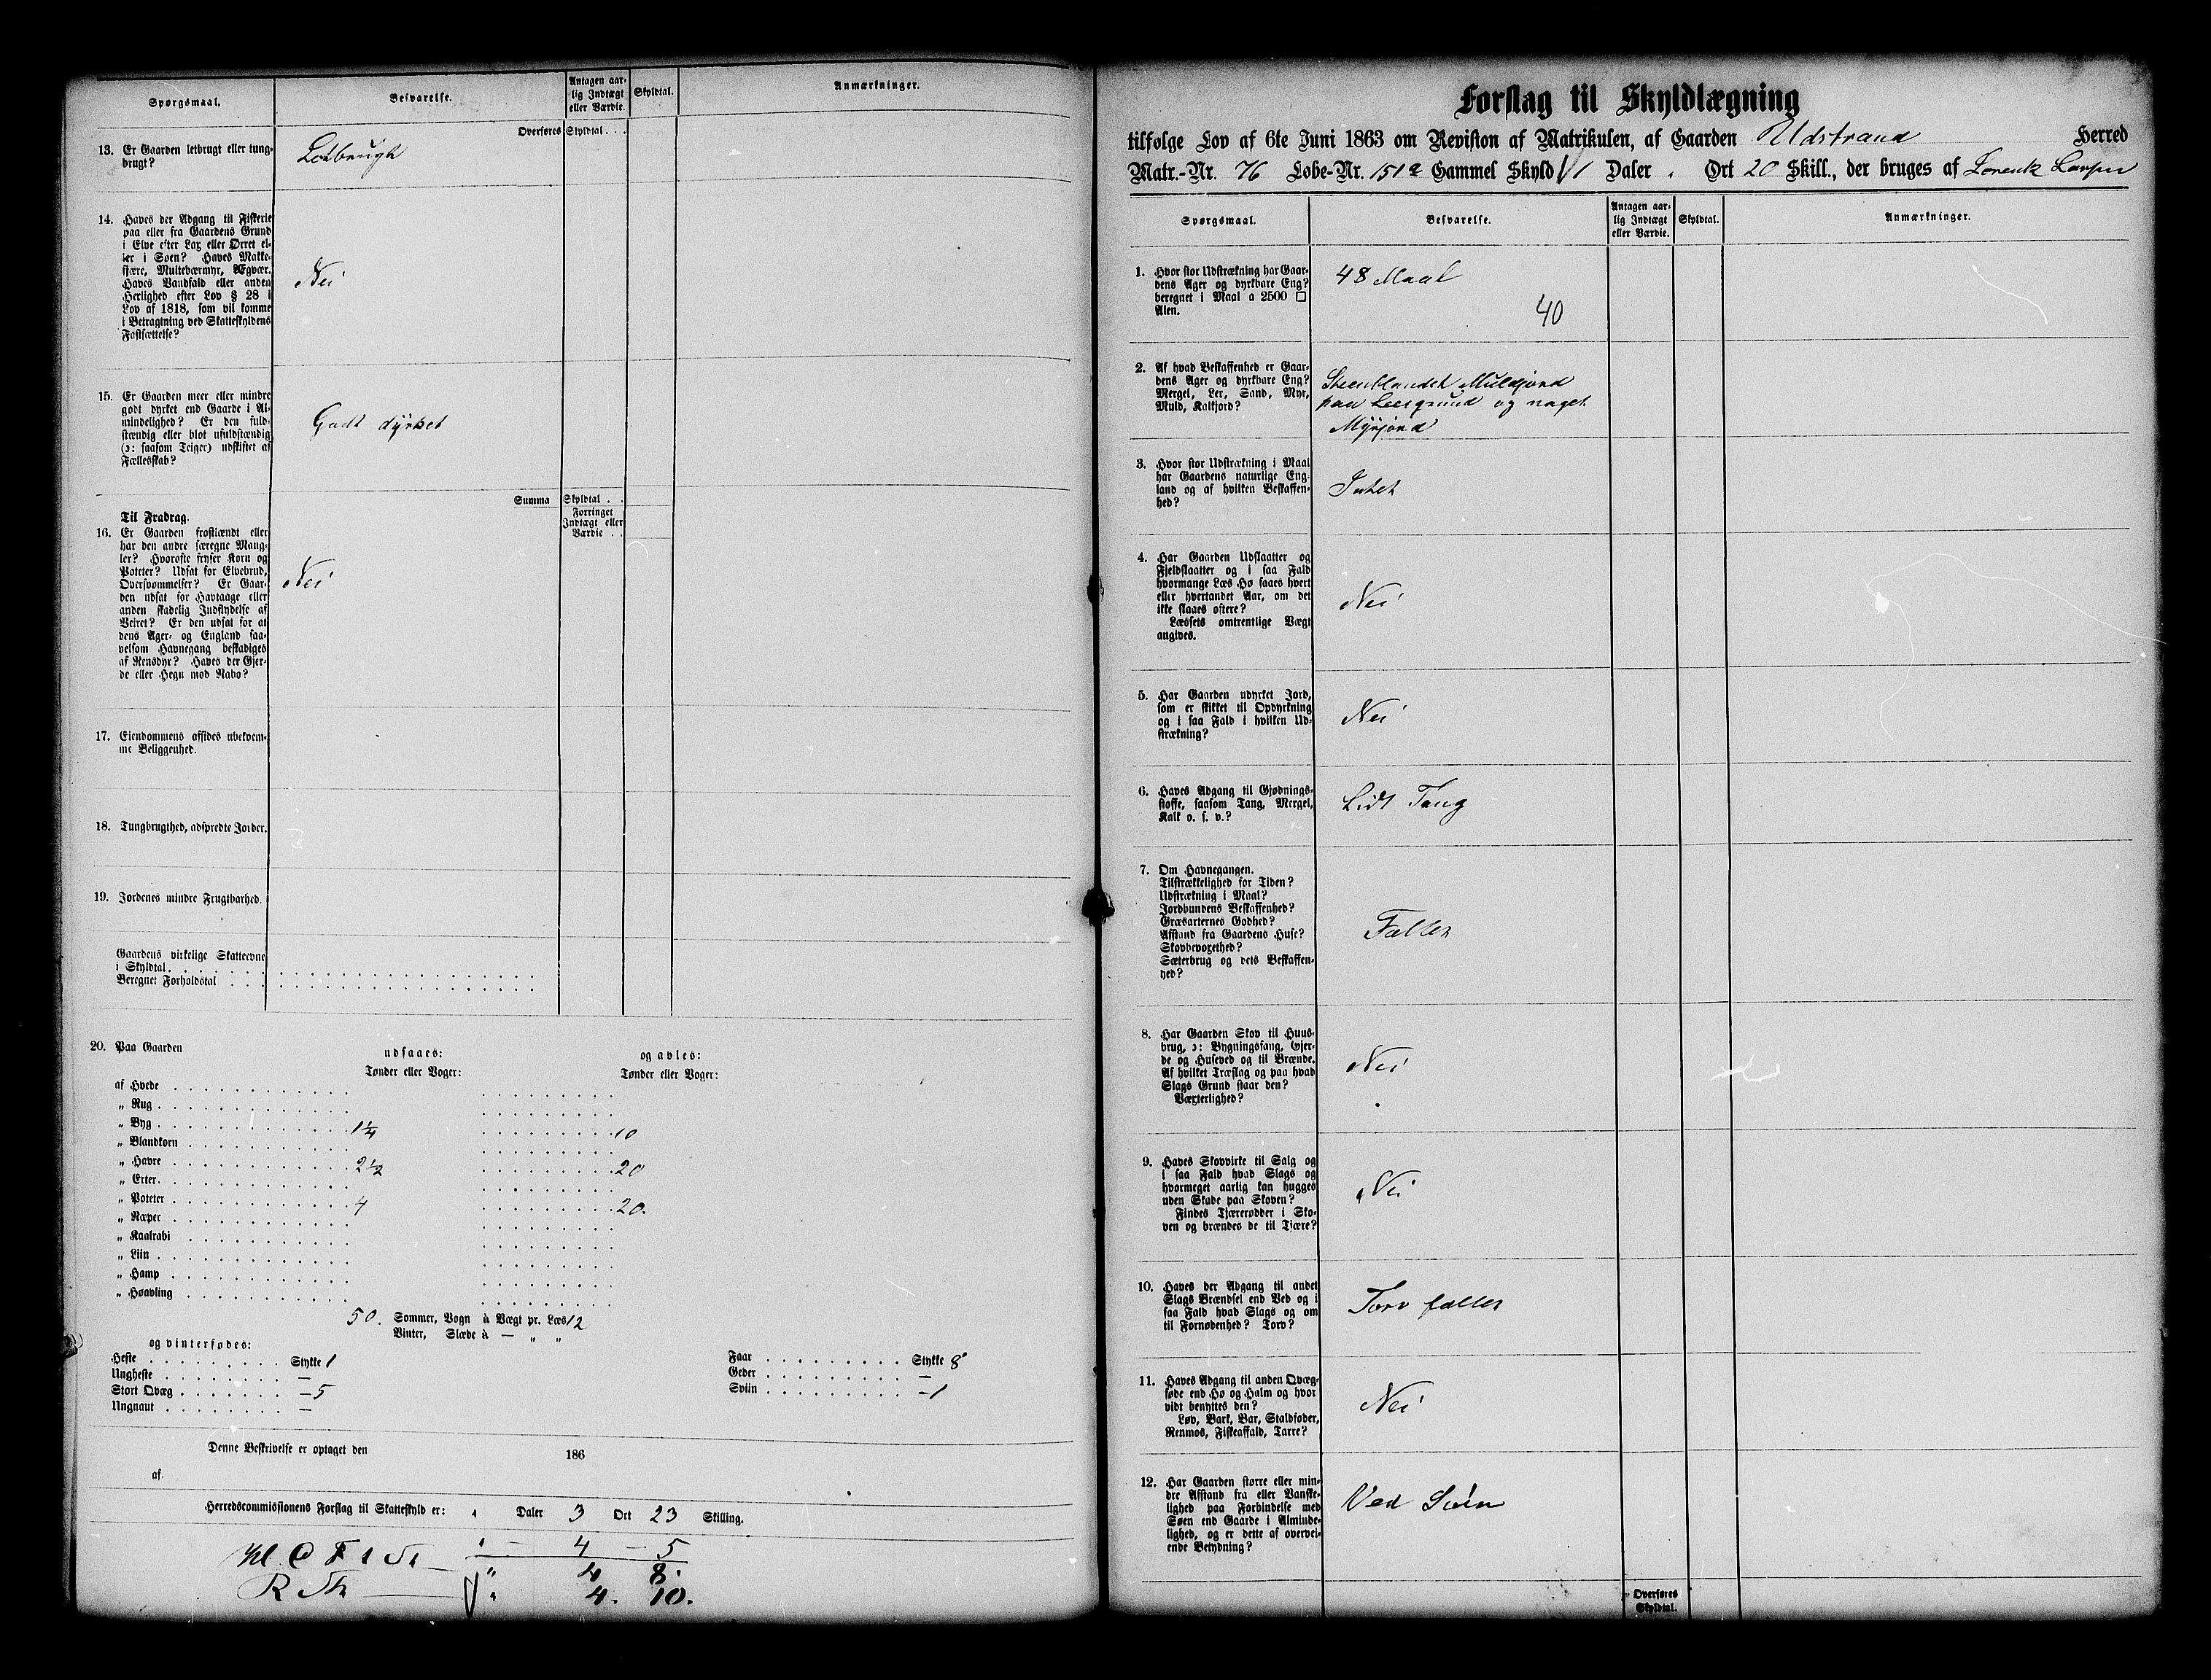 Spørgsmaal.
Besvarelse.
Antagen aar-
lig Indtægt
eller Værdie.
Skyldtal.
Anmærkninger.
Overføres Skyldtal . . .
13. Er Gaarden letbrugt eller tung-
brugt?
Letbrugt
14. Haves der Adgang til Fiskerie
paa eller fra Gaardens Grund
i Elve efter Lax eller Ørret el-
ler i Søen? Haves Makke-
fjære, Multebærmyr, Ægvær.
Haves Vandfald eller anden
Herlighed efter Lov § 28 i
Lov af 1818, som vil komme
i Betragtning ved Skatteskyldens
Fastsættelse?
Nei
15. Er Gaarden meer eller mindre
godt dyrket end Gaarde i Al-
mindelighed? Er den fuld-
stændig eller blot ufuldstændig
(ɔ: saasom Teiger) udskiftet af
Fællesskab?
Godt dyrket
Summa Skyldtal . .
Til Fradrag.
Forringet
Indtægt eller
Værdie . .
16. Er Gaarden frostlændt eller
har den andre særegne Mang-
ler? Hvorofte fryser Korn og
Poteter? Udsat for Elvebrud,
Oversvømmelser? Er Gaar-
den udsat for Havtaage eller
anden skadelig Indflydelse af
Veiret? Er den udsat for at
dens Ager- og England saa-
velsom Havnegang beskadiges
af Rensdyr? Haves der Gjer-
de eller Hegn mod Nabo?
Nei
17. Eiendommens afsides ubekvem-
me Beliggenhed.
18. Tungbrugthed, adspredte Jorder.
19. Jordenes mindre Frugtbarhed.
Gaardens virkelige Skatteevne
i Skyldtal. . . . . . . . . .
Beregnet Forholdstal . . . . . . . . . .
20. Paa Gaarden
udsaaes:
og avles:
Tønder eller Voger:
Tønder eller Voger:
af Hvede . . . . . . . . . .
„ Rug . . . . . . . . . .
„ Byg . . . . . . . . . . 1 1/4 10
„ Blandkorn . . . . . . . . . .
„ Havre . . . . . . . . . . 2 1/2 20
„ Erter . . . . . . . . . .
„ Poteter . . . . . . . . . . 4 20.
„ Næper . . . . . . . . . .
„ Kaalrabi . . . . . . . . . .
„ Liin . . . . . . . . . .
„ Hamp . . . . . . . . . .
„ Høavling . . . . . . . . . .
50. Sommer, Vogn à Vægt pr. Læs 12
Vinter, Slæde à — „ „
og vinterfødes:
Heste . . . . . . . . . Stykke 1
Ungheste . . . . . . . . —
Stort Qvæg . . . . . . . — 5
Ungnaut . . . . . . . . —
Faar . . . . . . . . . Stykke 8
Geder . . . . . . . . . —
Sviin . . . . . . . . . — 1
Denne Beskrivelse er optaget den 186
af.
Herredscommissionens Forslag til Skatteskyld er: „ Daler 3 Ort 23 Skilling.
„ — 4 — 5
„ 4 8.
„ 4. 10.
Forslag til Skyldlægning
tilfølge Lov af 6te Juni 1863 om Revision af Matrikulen, af Gaarden Udstrand Herred
Matr.-Nr. 76 Løbe-Nr. 151a Gammel Skyld 1 Daler „ Ort 20 Skill., der bruges af
Spørgsmaal.
Besvarelse.
Antagen aar-
lig Indtægt
eller Værdie.
Skyldtal.
Anmærkninger.
1. Hvor stor Udstrækning har Gaar-
dens Ager og dyrkbare Eng?
beregnet i Maal a 2500 □
Alen.
48 Maal
40
2. Af hvad Beskaffenhed er Gaar-
dens Ager og dyrkbare Eng?
Mergel, Ler, Sand, Myr,
Muld, Kalkjord?
Steenblandet Muldjord
paa Leergrund og noget
Myrjord
3. Hvor stor Udstrækning i Maal
har Gaardens naturlige Eng-
land og af hvilken Beskaffen-
hed?
Intet
4. Har Gaarden Udslaatter og
Fjeldslaatter og i saa Fald
hvormange Læs Hø faaes hvert
eller hvertandet Aar, om det
ikke slaaes oftere?
Læssets omtrentlige Vægt
angives.
Nei
5. Har Gaarden udyrket Jord,
som er skikket til Opdyrkning
og i saa Fald i hvilken Ud-
strækning?
Nei
6. Haves Adgang til Gjødnings-
stoffe, saasom Tang, Mergel,
Kalk o. s. v.?
Lidt Tang
7. Om Havnegangen.
Tilstrækkelighed for Tiden?
Udstrækning i Maal?
Jordbundens Beskaffenhed?
Græsarternes Godhed?
Afstand fra Gaardens Huse?
Skovbevoxethed?
Sæterbrug og dets Beskaffen-
hed?
Fælles
8. Har Gaarden Skov til Huus-
brug, ɔ: Bygningsfang, Gjer-
de og Huseved og til Brænde.
Af hvilket Træslag og paa hvad
Slags Grund staar den?
Væxterlighed?
Nei
9. Haves Skovvirke til Salg og
i saa Fald hvad Slags og
hvormeget aarlig kan hugges
uden Skade paa Skoven?
Findes Tjærerødder i Sko-
ven og brændes de til Tjære?
Nei
10. Haves der Adgang til andet
Slags Brændsel end Ved og i
saa Fald hvad Slags og om
til Fornødenhed? Torv?
Torv fælles
11. Haves Adgang til anden Qvæg-
føde end Hø og Halm og hvor
vidt benyttes den?
Løv, Bark, Bar, Staldfoder,
Renmos, Fiskeaffald, Tarre?
Nei
12. Har Gaarden større eller min-
dre Afstand fra eller Vanske-
lighed paa Forbindelse med
Søen end Gaarde i Alminde-
lighed, og er dette af overvei-
ende Betydning?
Ved Søen
Overføres
Skyldtal.